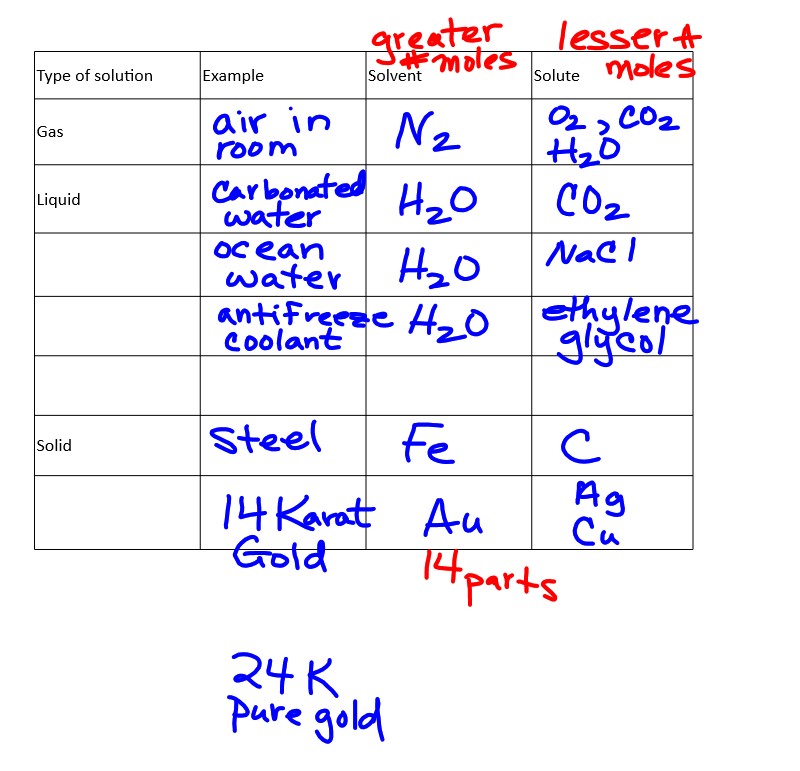 greater lesser #
# moles moles
Type of solution Example Solvent Solute
Gas air in room N₂ O₂, CO₂ H₂O
Liquid Carbonated water H₂O CO₂
ocean water H₂O NaCl
antifreeze coolant H₂O ethylene glycol
Solid Steel Fe C
14 Karat Gold Au Ag Cu
14 parts
24 K
Pure gold